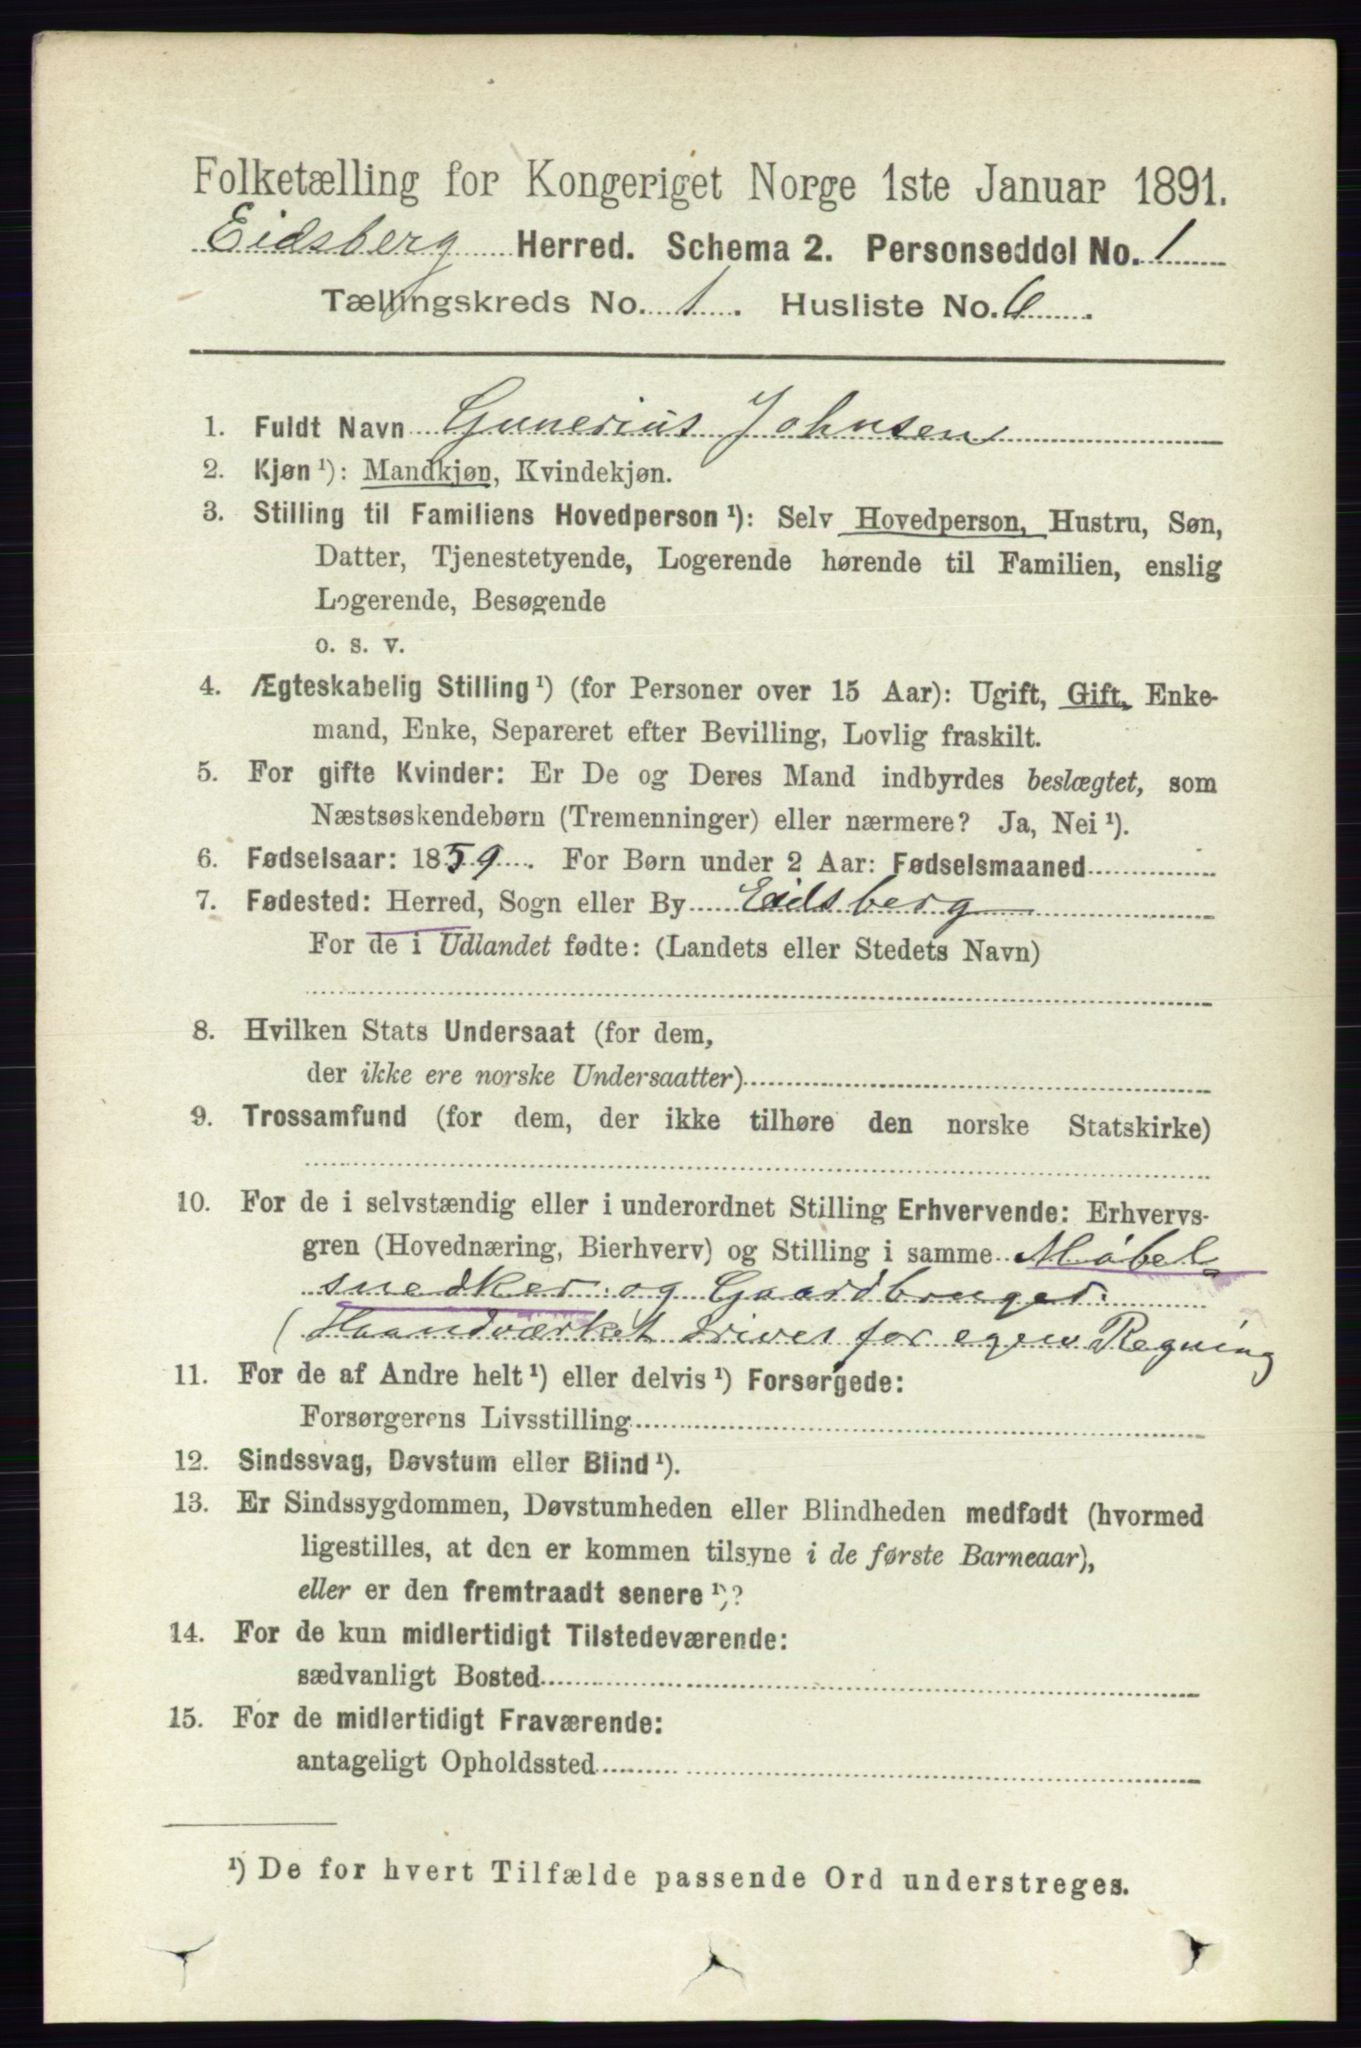 Folketælling for Kongeriget Norge 1ste Januar 1891.
Eidsberg Herred. Schema 2. Personseddel No. 1
Tællingskreds No. 1. Husliste No. 6.
1. Fuldt Navn Gunerius Johnsen
2. Kjøn ¹): Mandkjøn, Kvindekjøn.
3. Stilling til Familiens Hovedperson ¹): Selv Hovedperson, Hustru, Søn,
Datter, Tjenestetyende, Logerende hørende til Familien, enslig
Logerende, Besøgende
o. s. v.
4. Ægteskabelig Stilling ¹) (for Personer over 15 Aar): Ugift, Gift, Enke-
mand, Enke, Separeret efter Bevilling, Lovlig fraskilt.
5. For gifte Kvinder: Er De og Deres Mand indbyrdes beslægtet, som
Næstsøskendebørn (Tremenninger) eller nærmere? Ja, Nei ¹).
6. Fødselsaar: 1859. For Børn under 2 Aar: Fødselsmaaned
7. Fødested: Herred, Sogn eller By Eidsberg
For de i Udlandet fødte: (Landets eller Stedets Navn)
8. Hvilken Stats Undersaat (for dem,
der ikke ere norske Undersaatter)
9. Trossamfund (for dem, der ikke tilhøre den norske Statskirke)
10. For de i selvstændig eller i underordnet Stilling Erhvervende: Erhvervs-
gren (Hovednæring, Bierhverv) og Stilling i samme Møbel-
snedker og Gaardbruger.
(Haandværket drives for egen Regning
11. For de af Andre helt ¹) eller delvis ¹) Forsørgede:
Forsørgerens Livsstilling
12. Sindssvag, Døvstum eller Blind ¹).
13. Er Sindssygdommen, Døvstumheden eller Blindheden medfødt (hvormed
ligestilles, at den er kommen tilsyne i de første Barneaar),
eller er den fremtraadt senere ¹)?
14. For de kun midlertidigt Tilstedeværende:
sædvanligt Bosted
15. For de midlertidigt Fraværende:
antageligt Opholdssted
¹) De for hvert Tilfælde passende Ord understreges.